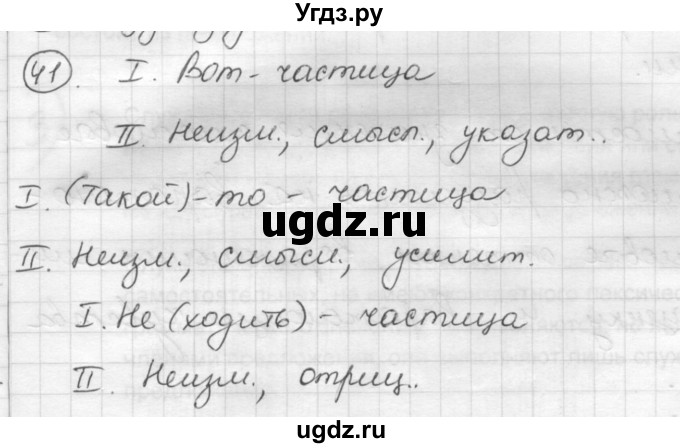 Угдз.ру
41. I. Вот - частица
II. Неизм., смысл., указат..
I. (такой)-то - частица
ugdz.ru
II. Неизм., смысл., усилит.
I. Не (ходить) - частица
II. Неизм., отриц..
ugdz.ru